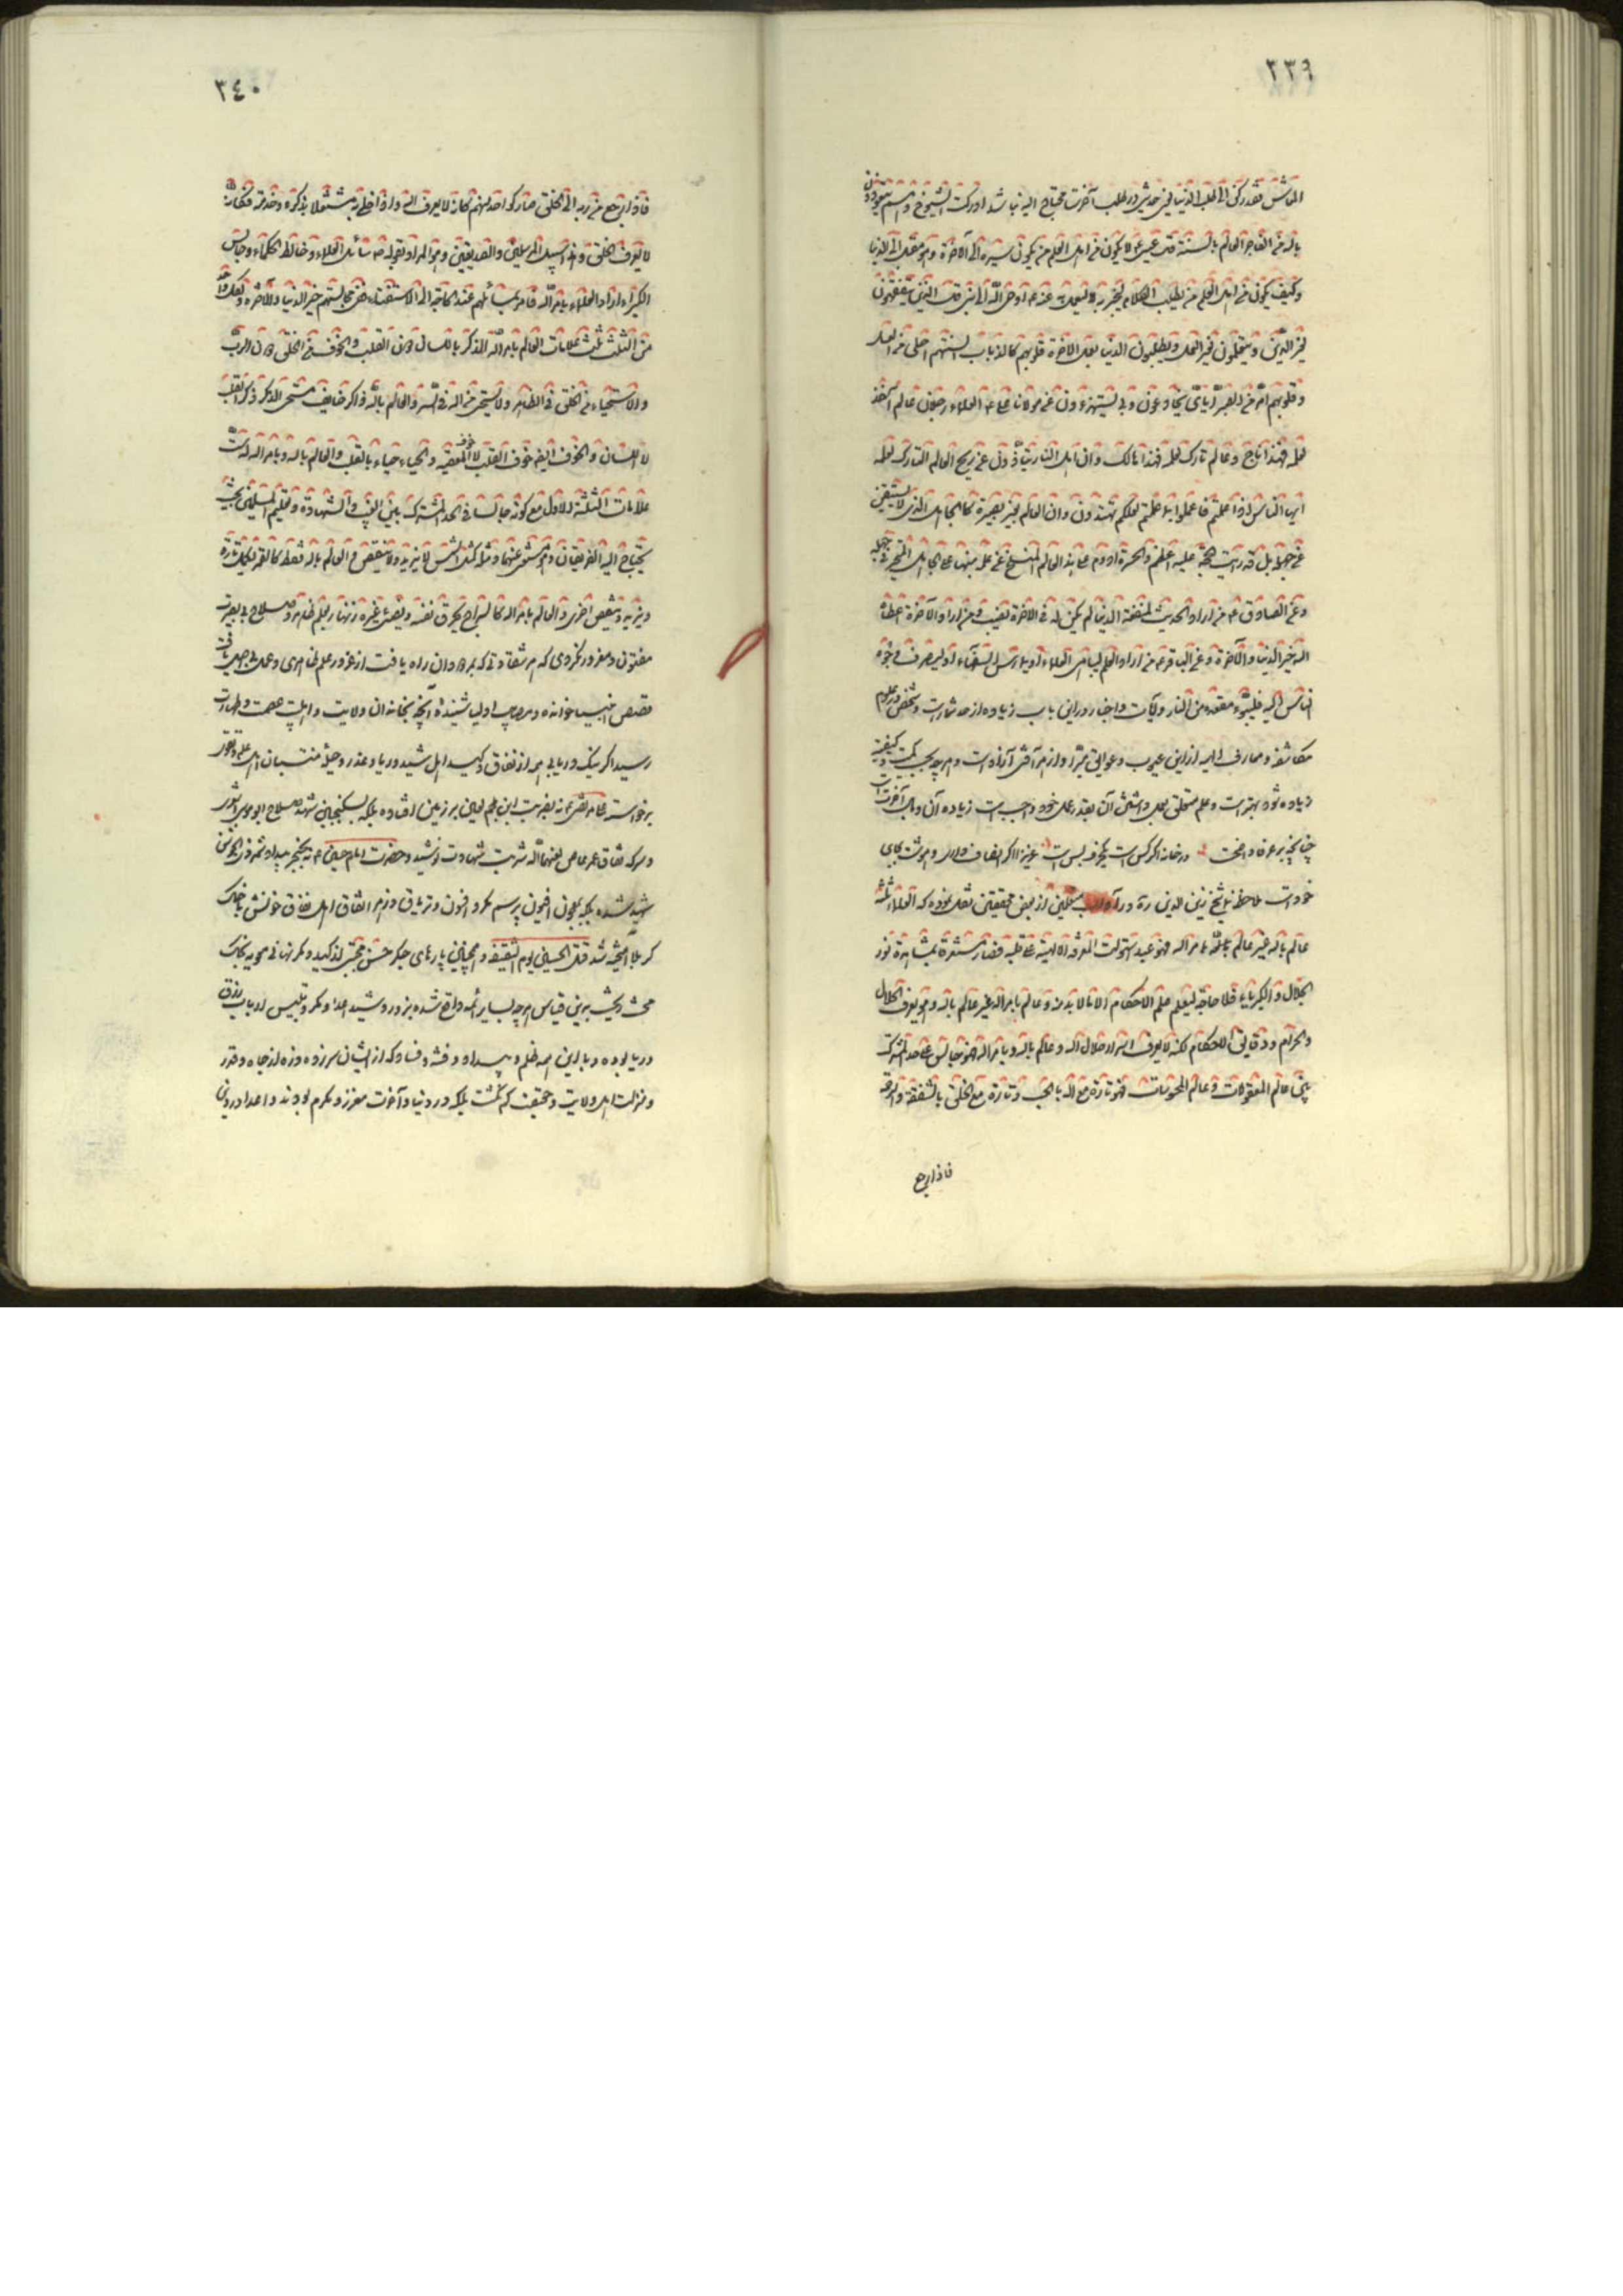 ٣٣٩
الناس فقد ركن الى طلب الدنيا يعنى حديثى در طلب آخرت محتاج اليه نباشد ادركت الشيوخ وهم يتعوذون
بالله من الفاجر العالم بالسنة قال عيسى ع لا يكون من اهل العلم من يكون مسيره الى الآخرة وهو مقبل الى الدنيا
وكيف يكون من اهل العلم من يطلب الكلام ليخبر به لا ليعمل به عنه ع اوحى الله الى نبى قل الذين يتفقهون
لغير الدين ويتعلمون لغير العمل ويطلبون الدنيا بعمل الاخرة قلوبهم كالذباب السنتهم احلى من العسل
وقلوبهم امرّ من الصبر اياى يخادعون وبى يستهزءون عن مولانا على ع العلماء رجلان عالم آخذ
بعلمه فهذا ناج وعالم تارك لعلمه فهذا هالك وان اهل النار يتأذون عن ريح العالم التارك لعلمه
ايها الناس اذا علمتم فاعملوا بما علمتم لعلكم تهتدون وان العالم بغير بصيرة كالجاهل الذى لا يستفيق
عن جهله بل قد رايت الحجة عليه اعظم والحسرة ادوم على هذا العالم المنسلخ عن علمه منها على الجاهل المتحير فى جهله
وعن الصادق ع من اراد الحديث لمنفعة الدنيا لم يكن له فى الاخرة نصيب ومن اراد الآخرة اعطاه
الله خير الدنيا والآخرة وعن الباقر ع من اراد العلم ليباهى العلماء او يمارى به السفهاء او ليصرف وجوه
الناس اليه فليتبوء مقعده من النار وآيات واخبار در اين باب زياده از حد شمار است وشخص در علوم
مكاشفه ومعارف الهيه از اين عيوب وعوايق مبرّا واز هر آفتى آزاد است وهر چه بحسب كميت وكيفيت
زياده شود بهتر است وعلم متعلق بعمل داشتن آن بقدر عمل خود واجب است زياده آن وبال آخرت است
چنانچه بر عرفا واضحست در خانه اگر كس است يكحرف بس است عزيزا اگر انصاف دارى وهوشت بجاى
خود است ملاحظه نما شيخ زين الدين ره در آداب متعلمين از بعض محققين نقل نموده كه العلماء ثلثه
عالم بالله غير عالم بامر الله فهو عبد استولت المعرفة الالهية على قلبه فصار مستغرقا بمشاهدة نور
الجلال والكبرياء فلا حاجة ليعلم علم الاحكام الا ما لا بد منه وعالم بامر الله غير عالم بالله وهو يعرف الحلال
والحرام ودقايق الاحكام لكنه لا يعرف اسرار جلال الله وعالم بالله وبامر الله فهو جالس على حد المشترك
بين عالم المعقولات وعالم المحسوسات فهو تارة مع الله بالحب وتارة مع الخلق بالشفقة والرحمة
فاذا رجع
٣٤٠
فاذا رجع من ربه الى الخلق صار كواحد منهم كانه لا يعرف الله واذا خلى بربه مشتغلا بذكره وخدمته فكانه
لا يعرف الخلق وهذا سبيل المرسلين والصديقين وهو المراد بقوله ص سائل العلماء وخالط الحكماء وجالس
الكبراء اراد العلماء بامر الله فامر بسائلهم عند الحاجة الى الاستفتاء من مجالستهم خير الدنيا والآخرة ولكل واحد
من الثلث ثلث علامات العالم بامر الله الذكر باللسان دون القلب والخوف من الخلق دون الرب
والاستحياء من الخلق فى الظاهر ولا يستحيى من الله فى السر والعالم بالله ذاكر خايف مستحى الذكر ذكر القلب
لا اللسان والخوف ايضا خوف القلب لا خوف المعصية والحياء حياء بالقلب والعالم بالله وبامر الله له ست
علامات الثلثة للاول مع كونه جالسا فى الحد المشترك بين الغيب والشهادة وتعليم المسلمين بحيث
يحتاج اليه الفريقان وهو مستغن عنهما ومثله كمثل الشمس لا يزيد ولا ينقص والعالم بالله فقط كالقمر يكمل تارة
ويزيد وينقص اخرى والعالم بامر الله كالسراج يحرق نفسه ويضئ غيره زنهار بعلم ظاهر وصلاح بى بصيرت
مفتون ومغرور نگردى كه هر شقاوتى كه بمردان راه يافت از غرور علم بى امرى وعمل بى صفا يافت
قصص انبيا خوانده ومصايب اوليا شنيده آنچه بخاندان ولايت واهل بيت عصمت وطهارت
رسيد اگر نيك دريابى همه از نفاق وكيد اهل شيد وريا وغدر وحيله منتسبان اهل علم وتقوى
برخواست على مرتضى ع نه بضربت ابن ملجم لعين بر زمين افتاده بلكه بسكنجبين شهد صلاح ابو موسى اشعرى
وسركه نفاق عمر عاص لعنهما الله شربت شهادت نوشيد وحضرت امام حسين ع نه بخنجر بيداد شمر ذى الجوشن
شهيد شده بلكه بمعجون افيون پر سم مكر وافسون وترياق وزهر اتفاق اهل نفاق خونش با خاك
كربلا آميخته شد قتل الحسين يوم السقيفه وهمچنين پارهاى جگر حسن مجتبى از كيد ومكر نهانى معويه بخاك
در ريا بوده وبا اين همه ظلم وبيداد وفتنه وفساد كه از ايشان سر زده وزه از جاه وقدر
ومنزلت اهل ولايت وحقيقت كم نگشت بلكه در دنيا وآخرت معزز ومكرم بودند واعدا در دنيا